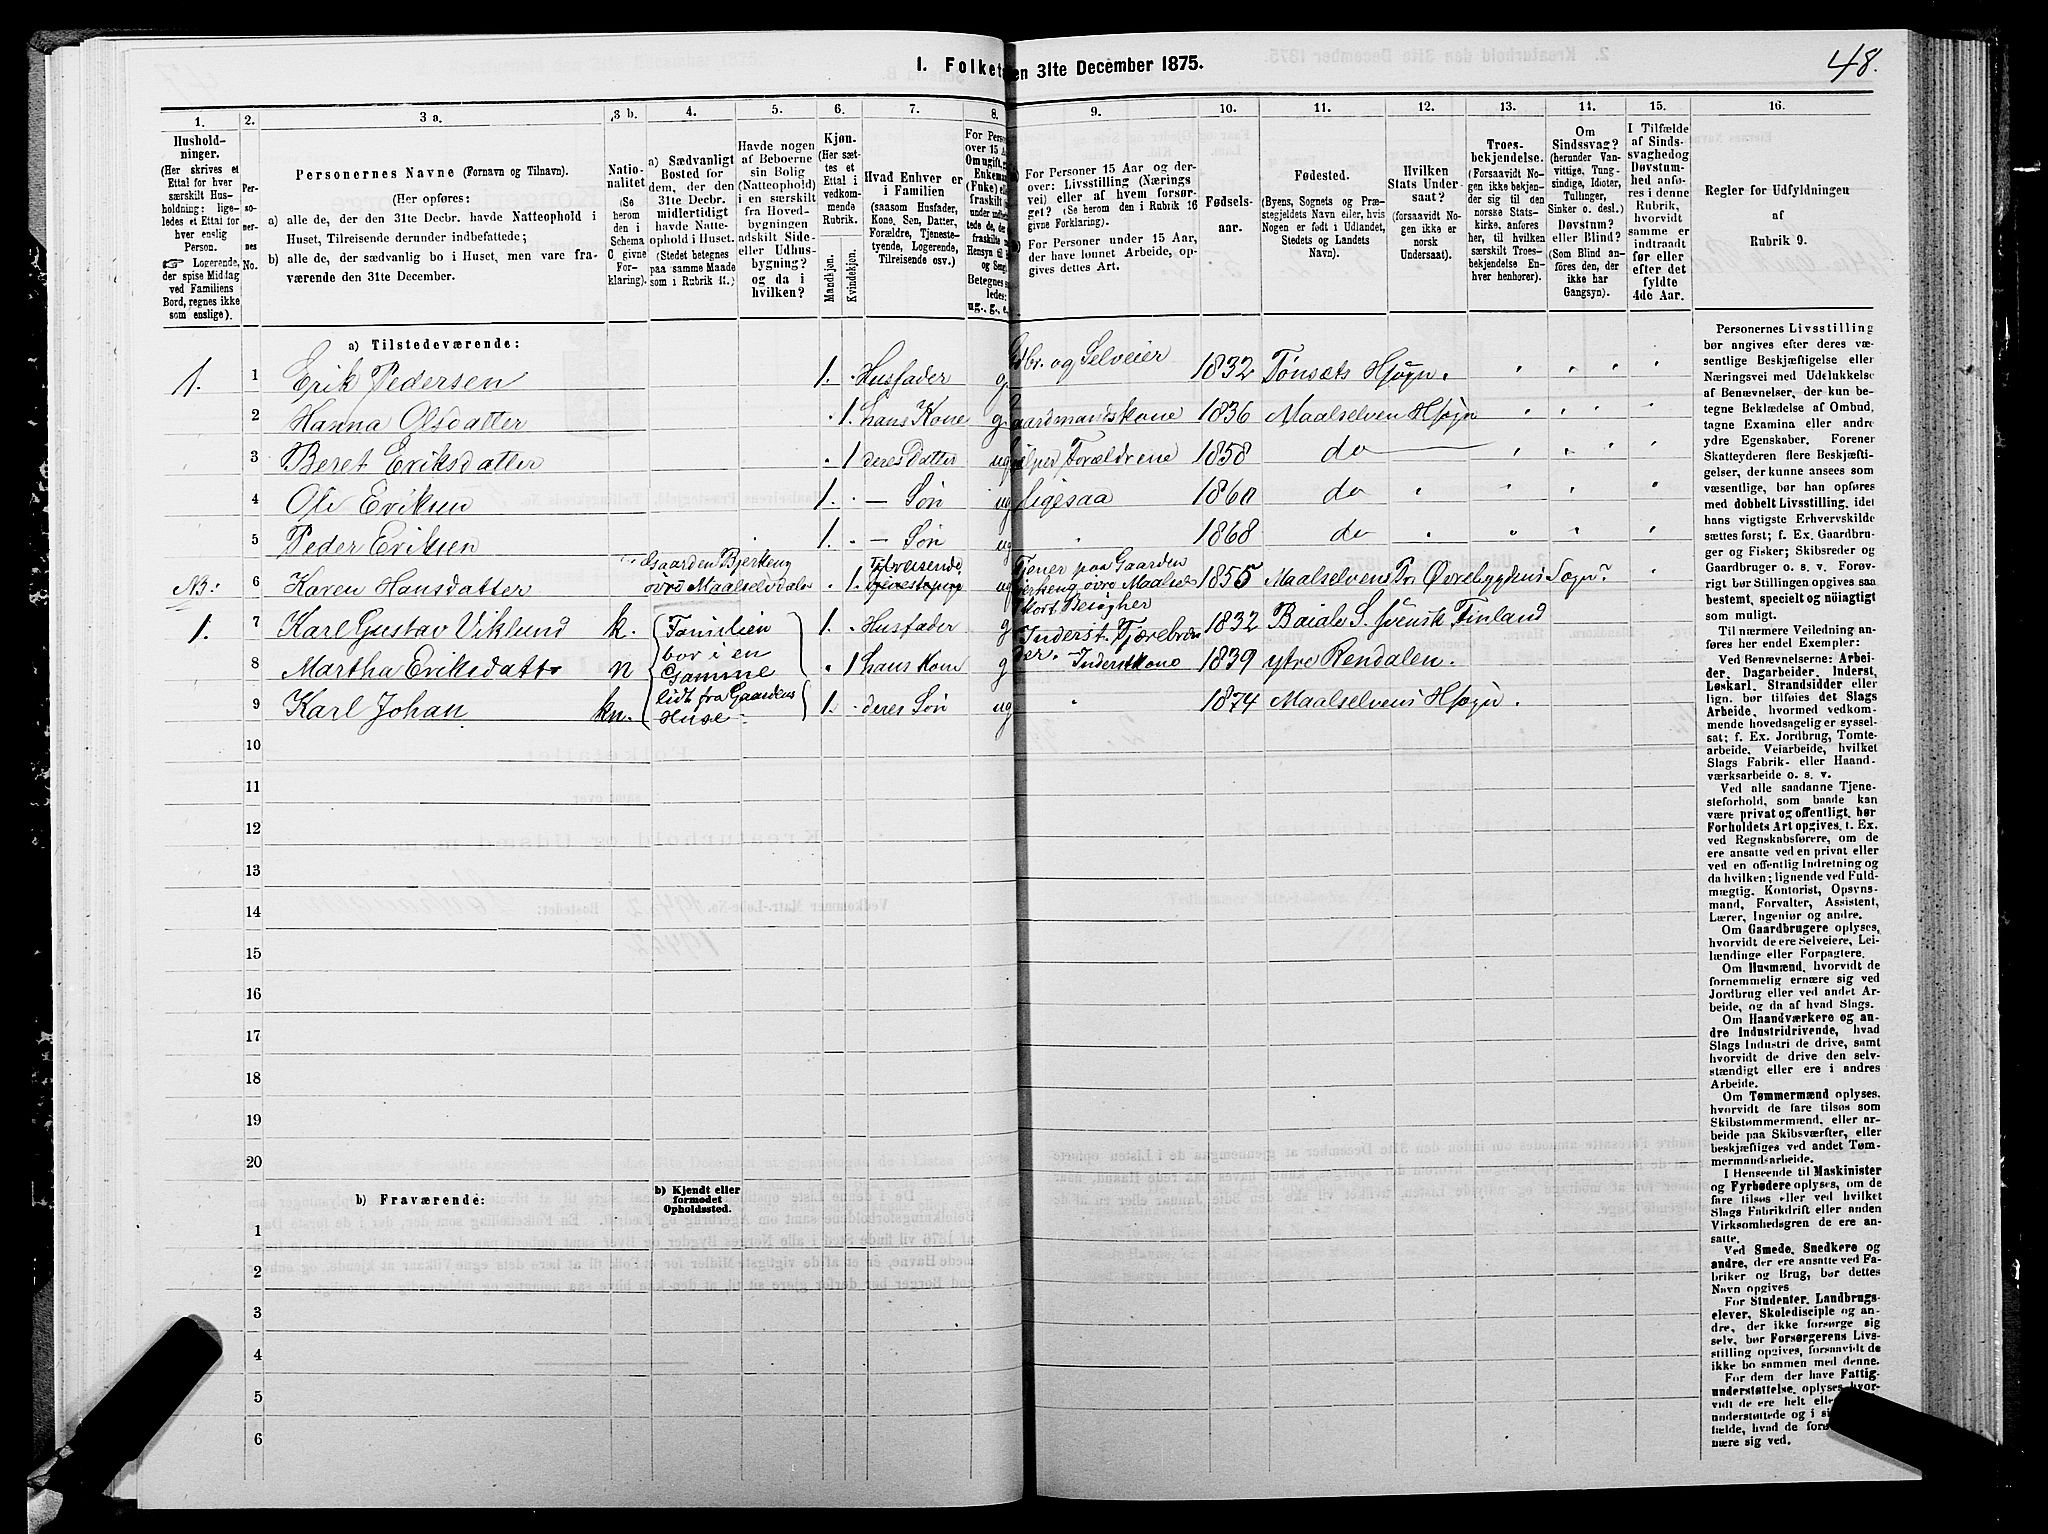 48.
1. Folket en 31te December 1875.
1.
2.
3 a.
3 b.
4.
5.
6.
7.
8.
9.
10.
11.
12.
13.
14.
15.
16.
Hushold-
ninger.
(Her skrives et
Ettal for hver
særskilt Hus-
holdning: lige-
ledes et Ettal for
hver enslig
Person.
☞ Logerende,
der spise Middag
ved Familiens
Bord, regnes ikke
som enslige).
Per-
so-
ner-
nes
No.
Personernes Navne (Fornavn og Tilnavn).
(Her opføres:
a) alle de, der den 31te Decbr. havde Natteophold i
Huset, Tilreisende derunder indbefattede;
b) alle de, der sædvanlig bo i Huset, men vare fra-
værende den 31te December.
Natio-
nalitet
(Se
herom
den i
Schema
C givne
For-
klaring).
a) Sædvanligt
Bosted for
dem, der den
31te Decbr.
midlertidigt
havde Natte-
ophold i Huset.
(Stedet betegnes
paa samme Maade
som i Rubrik 11.)
Havde nogen
af Beboerne
sin Bolig
(Natteophold)
i en særskilt
fra Hoved-
bygningen
adskilt Side-
eller Udhus-
bygning?
og da i
hvilken?
Kjøn.
(Her sæt-
tes et
Ettal i
vedkom-
mende
Rubrik.
Mandkjøn.
Kvindekjøn.
Hvad Enhver er
i Familien
(saasom Husfader,
Kone, Søn, Datter,
Forældre, Tjeneste-
tyende, Logerende,
Tilreisende osv.)
For Perso
over 15 A
Om ugift,
Enkeman
(Fnke) el
fraskilt
under
tede de,
fraskilte
Hensyn til
og Seng
Betegnes s
ledes:
ug., g., e.,
For Personer 15 Aar og der-
over: Livsstilling (Nærings
vei) eller af hvem forsør-
get? (Se herom den i Rubrik 16
givne Forklaring.)
For Personer under 15 Aar,
der have lønnet Arbeide, op-
gives dettes Art.
Fødsels-
aar.
Fødested.
(Byens, Sognets og Præ-
stegjeldets Navn eller, hvis
Nogen er født i Udlandet,
Stedets og Landets
Navn).
Hvilken
Stats Under-
saat?
(forsaavidt No-
gen ikke er
norsk
Undersaat).
Troes-
bekjendelse.
(Forsaavidt No-
gen ikke bekjen-
der sig til den
norske Stats-
kirke, anføres
her, til hvilken
særskilt Troes-
bekjendelse En-
hver henhører).
Om
Sindssvag?
(herunder Van-
vittige, Tung-
sindige, Idioter,
Tullinger,
Sinker o. desl.)
Døvstum?
eller Blind?
(Som Blind an-
føres den, der
ikke har
Gangsyn).
I Tilfælde
af Sinds-
svaghedog
Døvstum-
hed anfø-
res i denne
Rubrik,
hvorvidt
samme er
indtraadt
før eller
efter det
fyldte
4de Aar.
Regler for Udfyldningen
af
Rubrik 9.
a) Tilstedeværende:
1. 1 Erik Pedersen 1. Husfader g Gdbr. og Selveier 1832 Tønsæts Hsogn.
2 Hanna Olsdatter 1 hans Kone g Gaardmandskone 1836 Maalselven Hsogn
3 Beret Eriksdatter 1 deres Datter ug hjælper Forældrene 1858 do
4 Ole Eriksen 1. — Søn ug ligesaa 1860 do
5 Peder Eriksen 1. — Søn ug 1868 do
NB: 6 Karen Hansdatter Gaarden Bjerkeng øvre Maalselvdalen 1. Tilreisende ug Tjener paa Gaarden Bjerkeng øvre Maalselv 1855 Maalselvens Pr Øvrebygdens Sogn.
kort Besøgher
1. 7 Karl Gustav Viklund k. { Familien 1. Husfader g Inderst. Tjærebræn 1832 Baiale S. svensk Finland
8 Martha Eriksdatt n bor i en Gamme 1 hans Kone g der. Inderstkone 1839 ytre Rendalen.
9 Karl Johan kn. lidt fra Gaardens Huse 1. deres Søn ug 1874 Maalselvens Hsogn.
10
11
12
13
14
15
16
17
18
19
20
b) Fraværende:
b) Kjendt eller
formodet
Opholdssted.
1
2
3
4
5
6
Personernes Livsstilling
bør angives efter deres væ-
sentlige Beskjæftigelse eller
Næringsvei med Udelukkelse
af Benævnelser, der kun be-
tegne Beklædelse af Ombud,
tagne Examina eller andre
ydre Egenskaber. Forener
Skatteyderen flere Beskjæfti-
gelser, der kunne ansees som
væsentlige, bør han opføres
med dobbelt Livsstilling, idet
hans vigtigste Erhvervskilde
sættes først; f. Ex. Gaardbru-
ger og Fisker; Skibsreder og
Gaardbruger o. s. v. Forøv-
rigt bør Stillingen opgives saa
bestemt, specielt og nøiagtigt
som muligt.
Til nærmere Veiledning an-
føres her endel Exempler:
Ved Benævnelserne: Arbei-
der, Dagarbeider, Inderst,
Løskarl, Strandsidder eller
lign. bør tilføies det Slags
Arbeide, hvormed vedkom-
mende hovedsagelig er syssel-
sat; f. Ex. Jordbrug, Tomte-
arbeide, Veiarbeide, hvilket
Slags Fabrik- eller Haand-
værksarbeide o. s. v.
Ved alle saadanne Tjene-
steforhold, som baade kan
være privat og offentligt, bør
Forholdets Art opgives, t. Ex.
ved Regnskabsførere, om de
ere ansatte ved en privat eller
ved en offentlig Indretning og
da hvilken; lignende ved Fuld-
mægtig, Kontorist, Opsyns-
mand, Forvalter, Assistent,
Lærer, Ingeniør og andre.
Om Gaardbrugere oplyses,
hvorvidt de ere Selveiere, Lei-
lændinge eller Forpagtere.
Om Husmænd, hvorvidt de
fornemmelig ernære sig ved
Jordbrug eller ved andet Ar-
beide, og da af hvad Slags.
Om Haandværkere og an-
dre Industridrivende, hvad
Slags Industri de drive, samt
hvorvidt de drive den selv-
stændigt eller ere i andres
Arbeide.
Om Tømmermænd oplyses,
hvorvidt de fare tilsøs som
Skibstømmermænd, eller ar-
beide paa Skibsværfter, eller
beskjæftiges ved andet Tøm-
mermandsarbeide.
I Henseende til Maskinister
og Fyrbødere oplyses, om de
fare tilsøs eller ved hvilket
Slags Fabrikdrift eller anden
Virksomhedsgren de ere an-
satte.
Ved Smede, Snedkere og
andre, der ere ansatte ved Fa-
briker og Brug, bør dettes
Navn opgives
For Studenter, Landbrugs-
elever, Skoledisciple og an-
dre, der ikke forsørge sig
selv, bør Forsørgerens Livs-
stilling opgives, forsaavidt de
ikke bo sammen med denne.
For dem, der have Fattig-
understøttelse, oplyses, hvor-
vidt de ere helt elle
understøttede og i si
fælde, hvad de forø
nære sig ved.